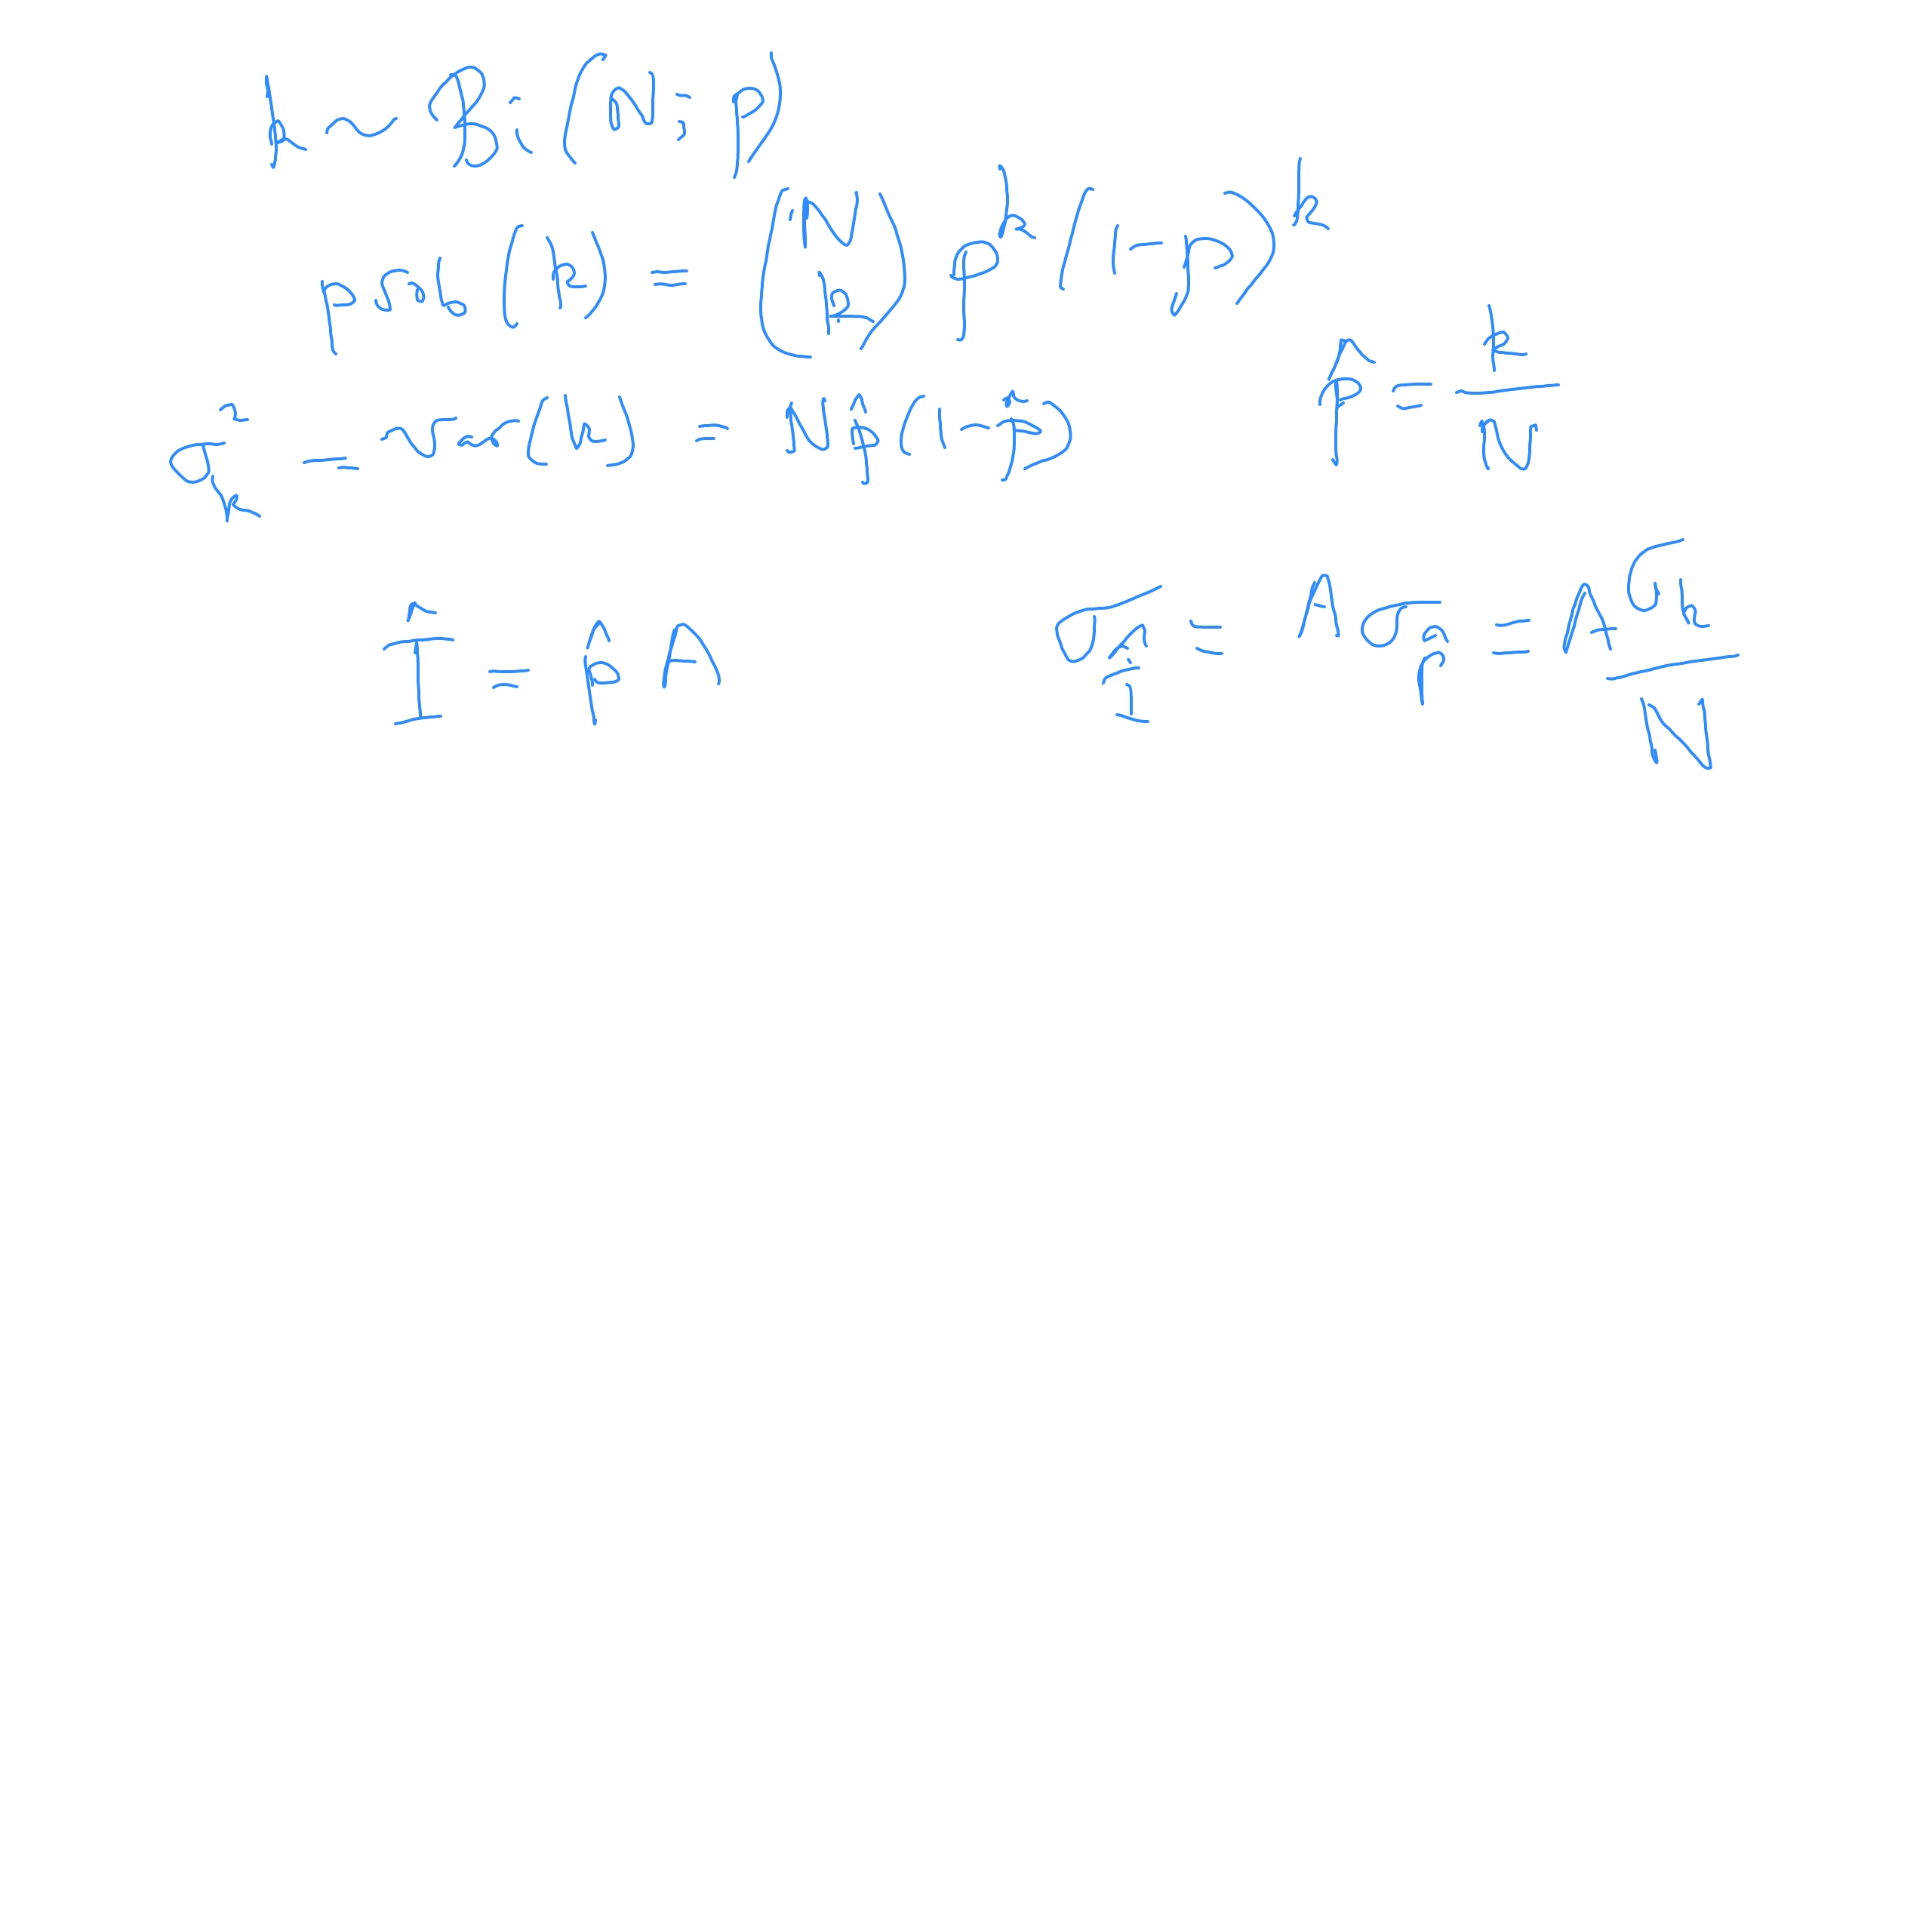 k ~ Bi(N; p)
prob(k) = (N k) p^k (1-p)^k
p̂ = k/N
σ_k^2 = var(k) = N p̂ (1-p̂)
Î = p̂ A
σ_Î = A σ_p̂ = A σ_k / N